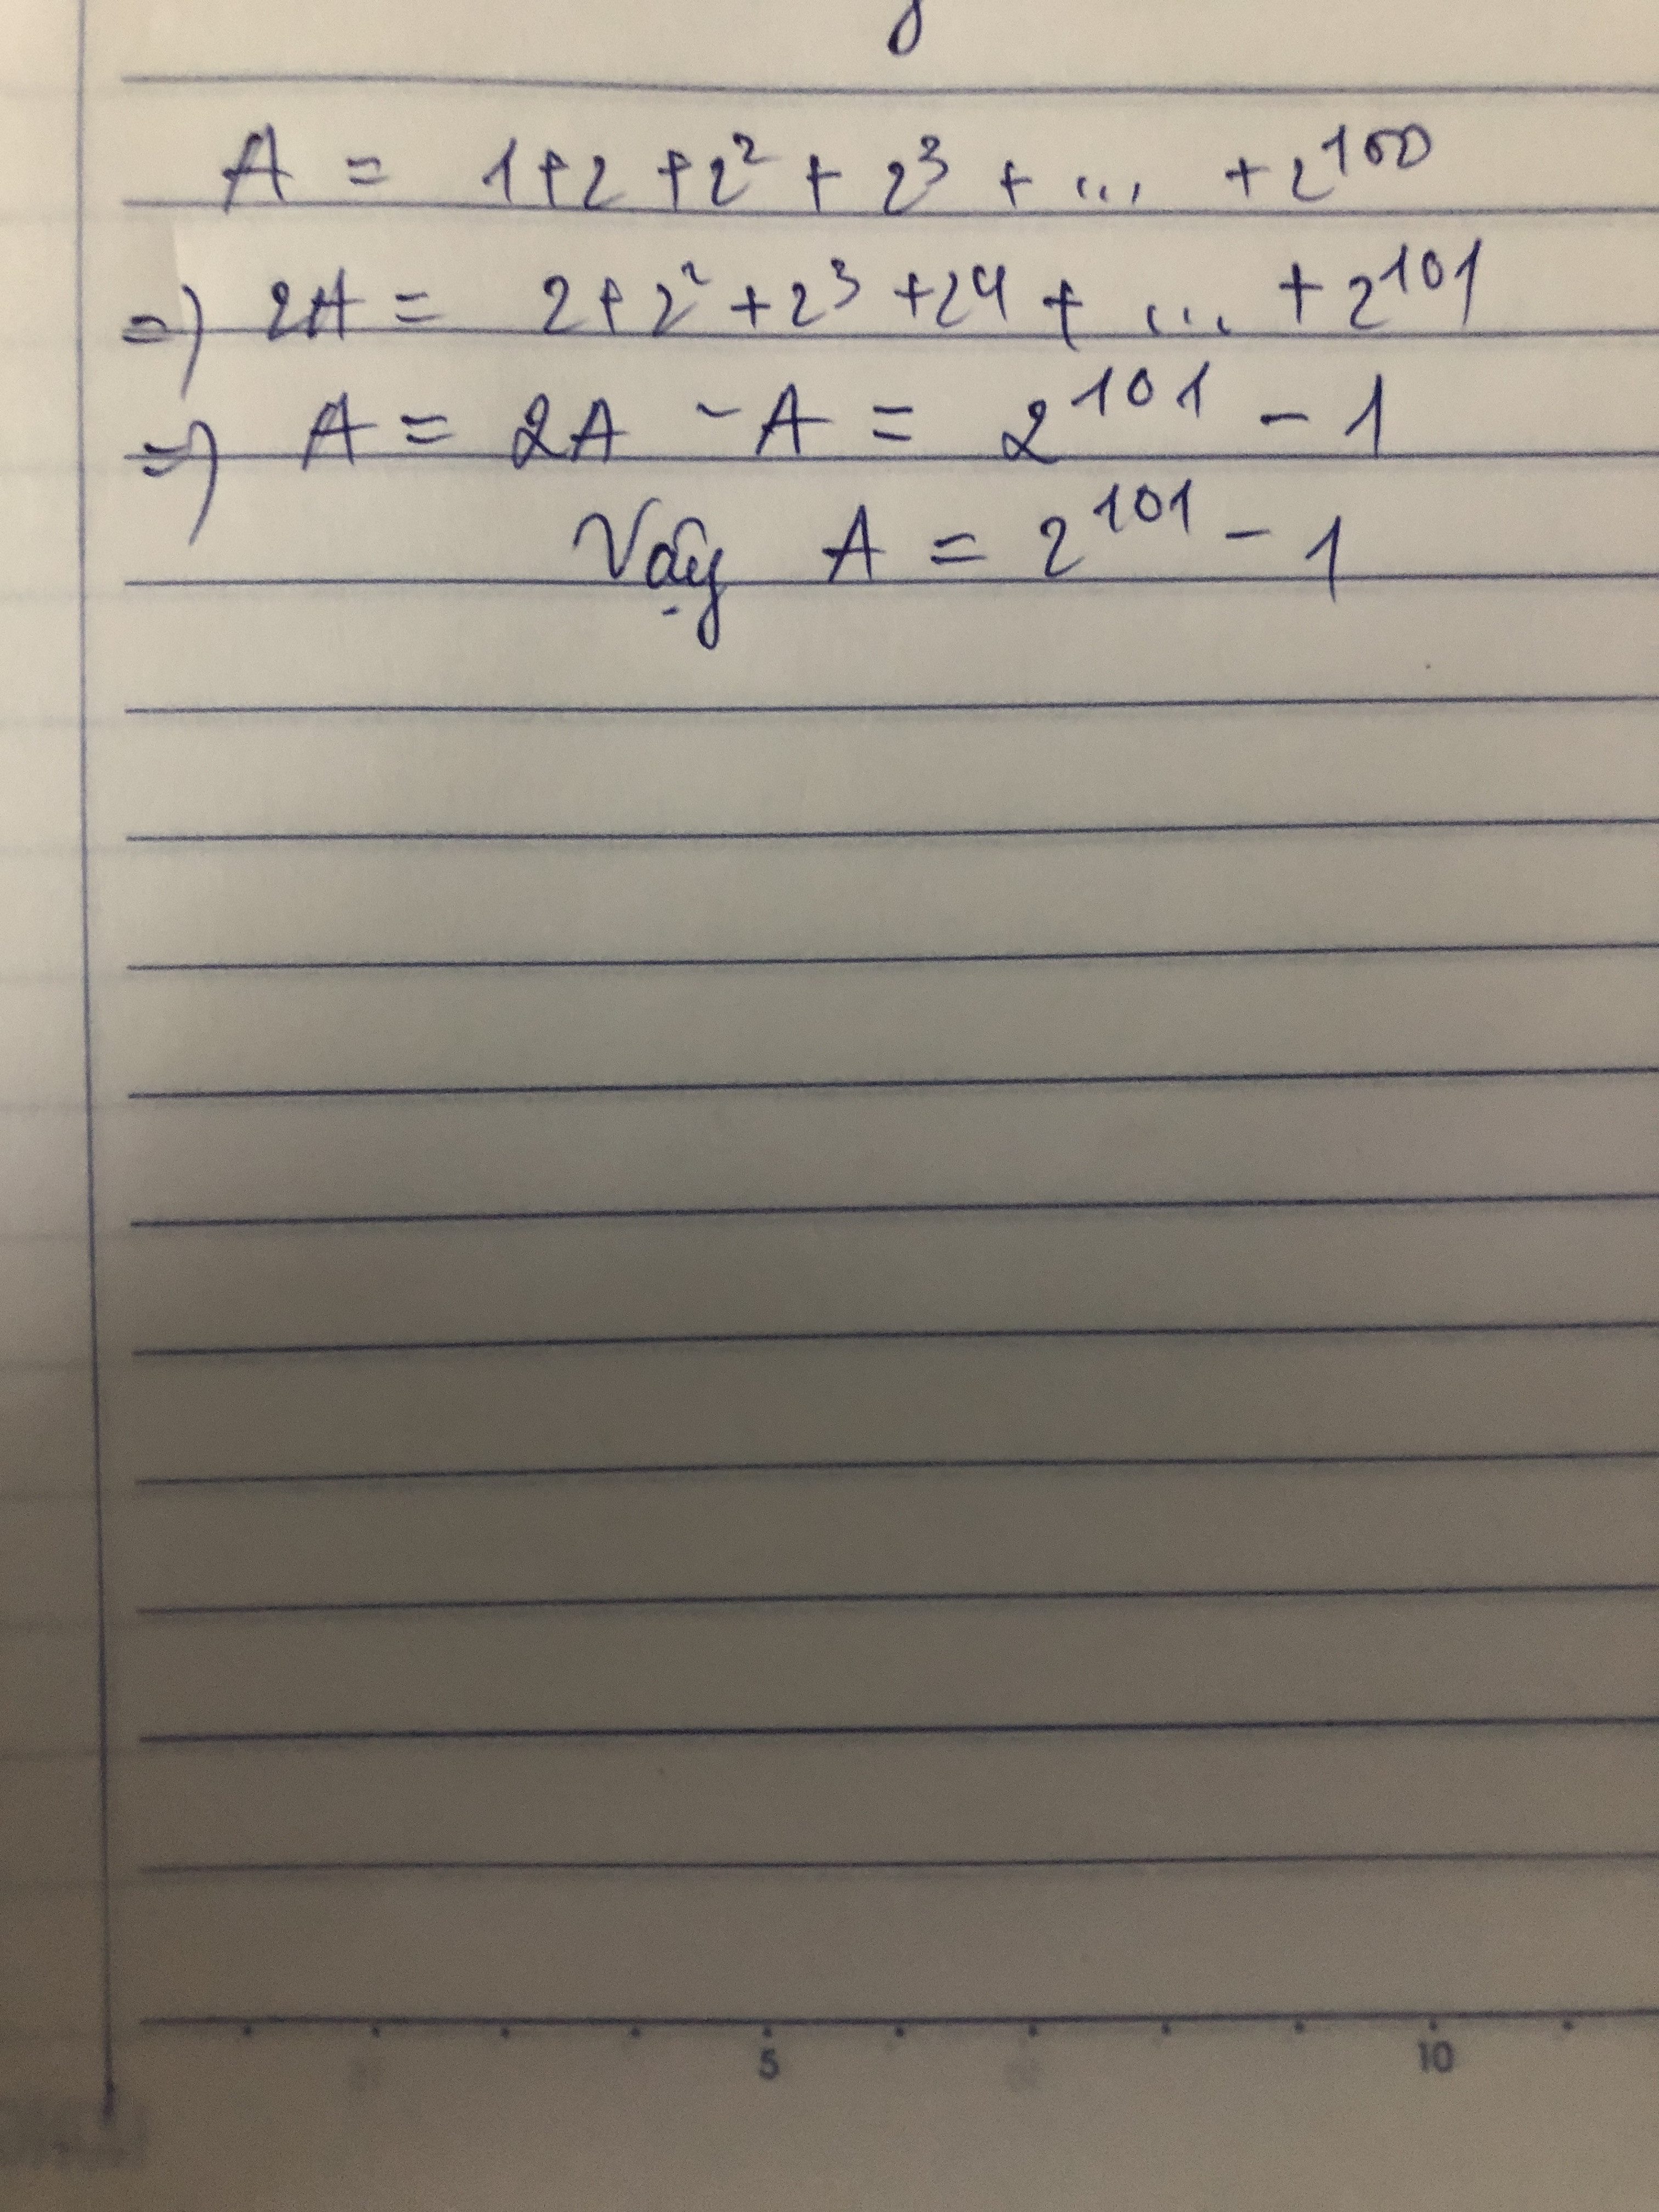 A = 1+2+2² + 2³ + ... + 2¹⁰⁰
=) 2A = 2+2²+2³+2⁴+ ... + 2¹⁰¹
=) A = 2A - A = 2¹⁰¹ - 1
Vậy A = 2¹⁰¹ - 1
5 10